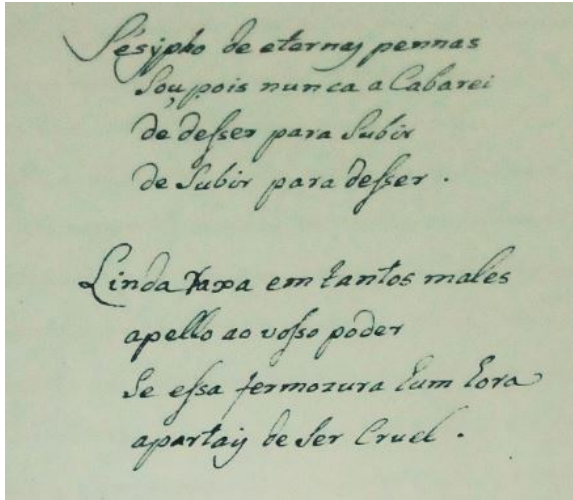 Sésypho de eternas pennas
Sou, pois nunca a Cabarei
de desser para Subir
de Subir para desser.
Linda em tantos males
apello ao vosso poder
Se essa fermozura
apartais de Ser Cruel.